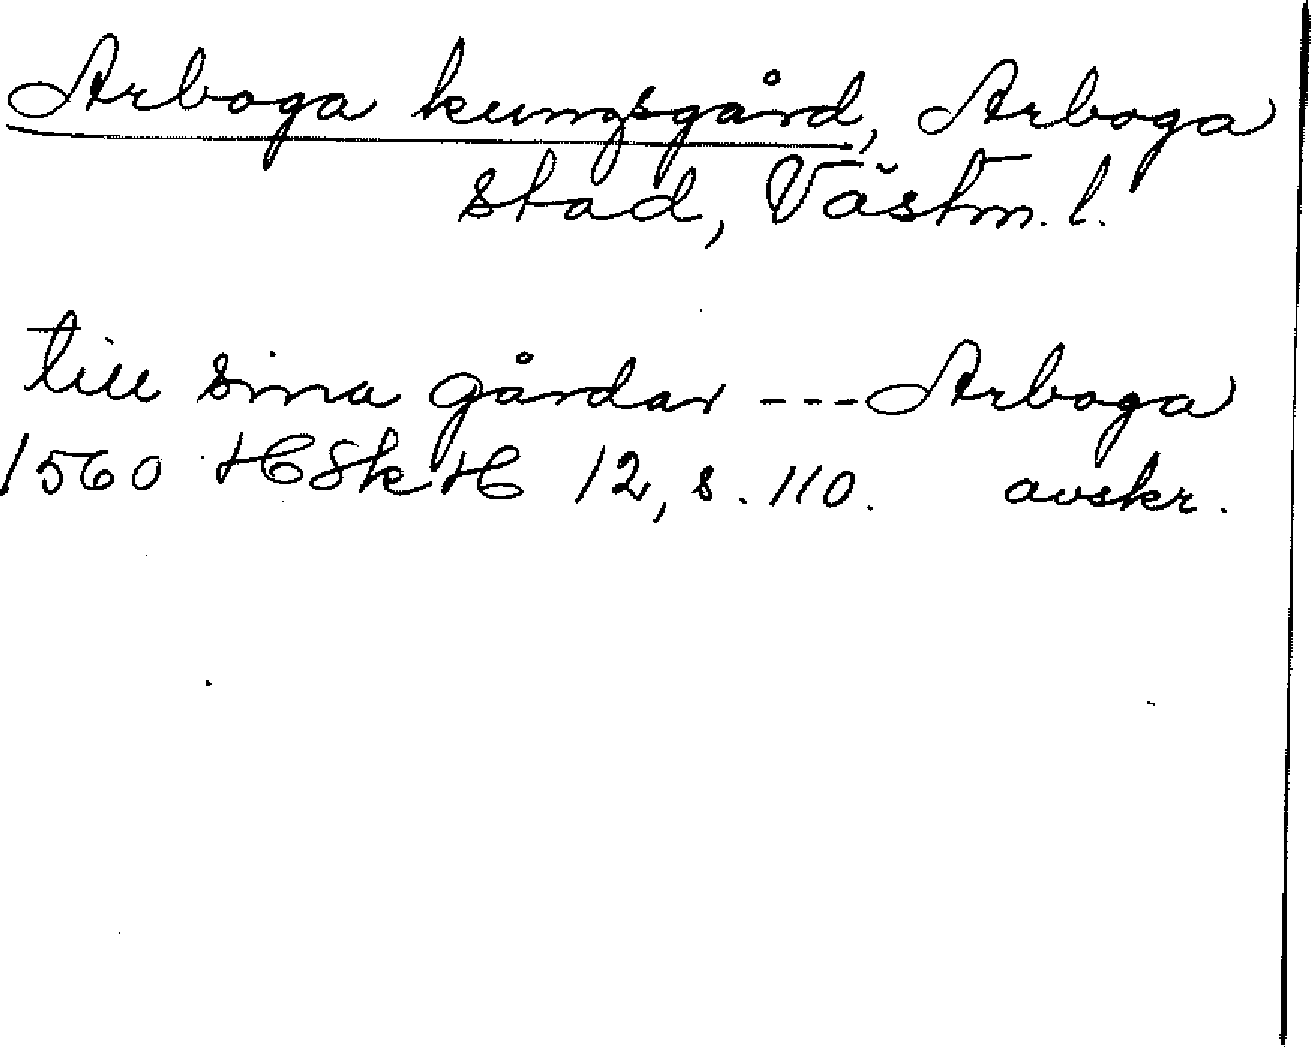 Arboga kungsgård, Arboga
stad, Västm. l.
till sina gårdar --- Arboga
1560 HSkH 12, s. 110. avskr.